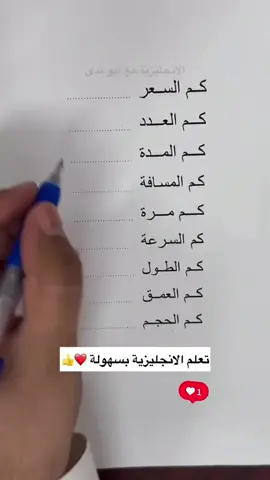 كم السعر ..................
كم العدد ..................
كم المدة ..................
كم المسافة ..................
كم مرة ..................
كم السرعة ..................
كم الطول ..................
كم العمق ..................
كم الحجم ..................
تعلم الانجليزية بسهولة ❤️👍
1